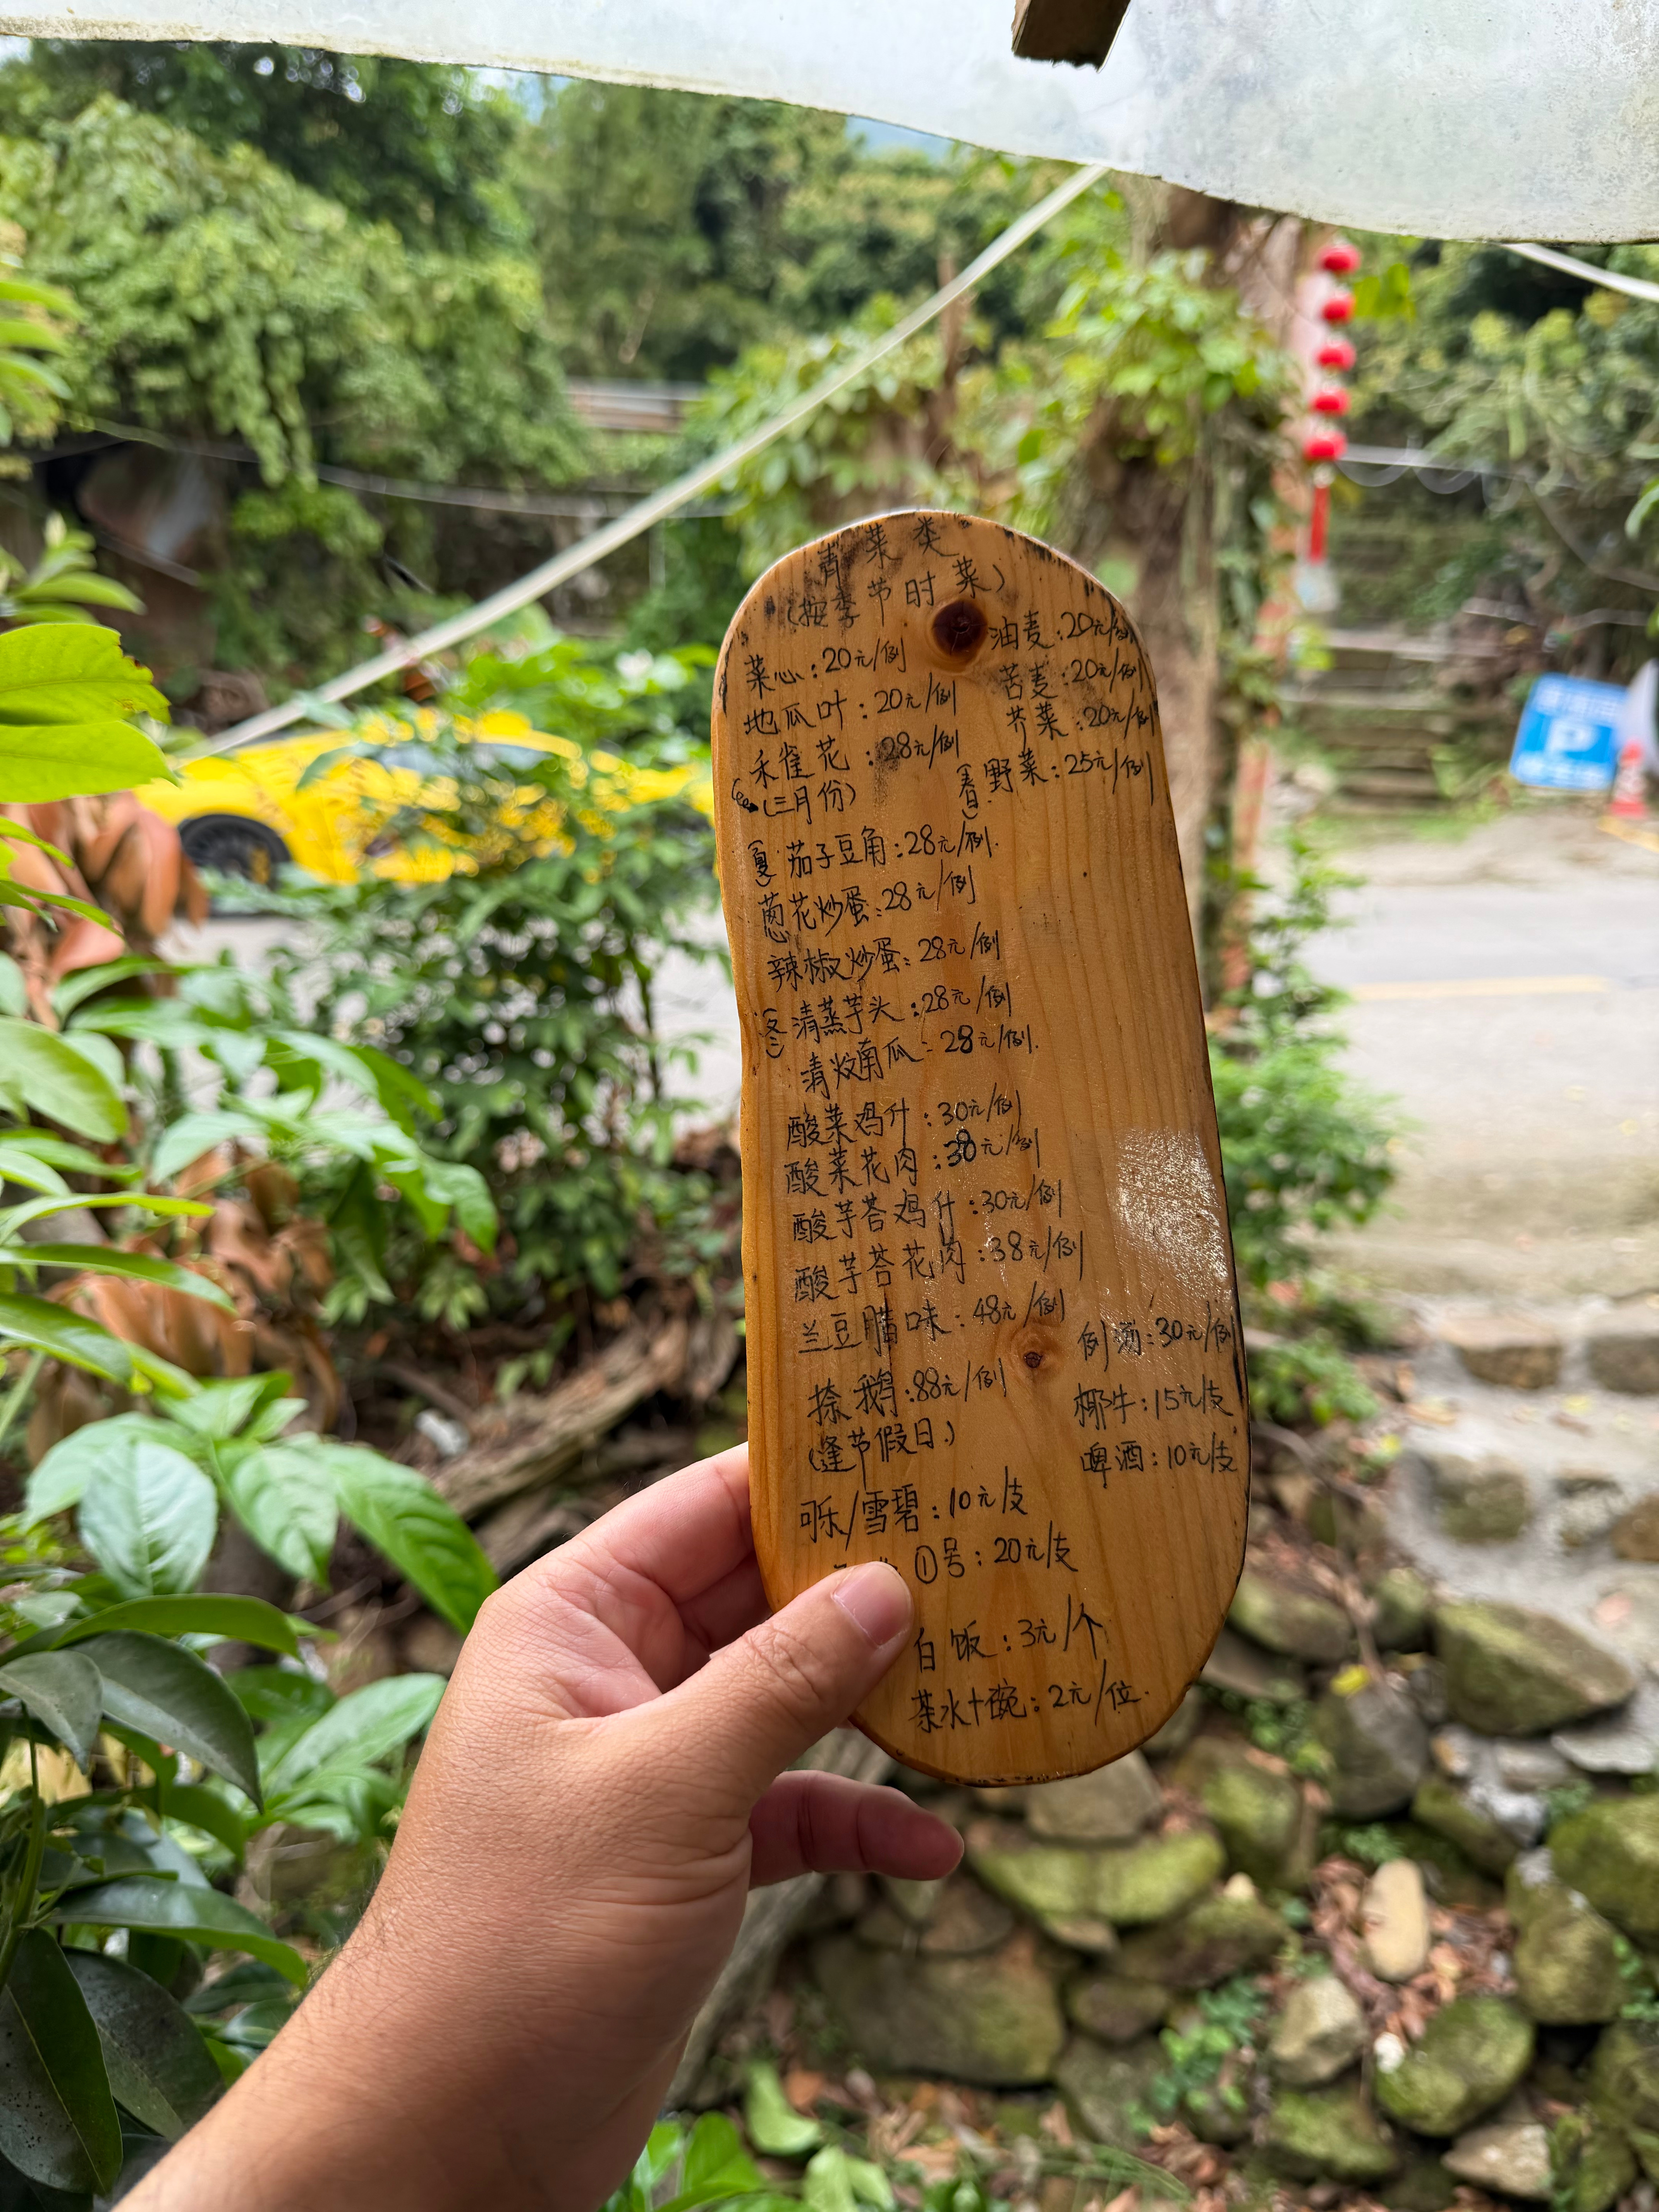 青菜类
(按季节时菜)
菜心:20元/例
油麦:20元/例
地瓜叶:20元/例
苦麦:20元/例
禾雀花:28元/例
芥菜:20元/例
(三月份)
(春)野菜:25元/例
(夏)茄子豆角:28元/例.
葱花炒蛋:28元/例
辣椒炒蛋:28元/例
(冬)清蒸芋头:28元/例
清炆南瓜:28元/例.
酸菜鸡什:30元/例
酸菜花肉:38元/例
酸芋苔鸡什:30元/例
酸芋苔花肉:38元/例
兰豆腊味:48元/例
例汤:30元/例
捺鹅:88元/例
(逢节假日)
椰牛:15元/支
啤酒:10元/支
可乐/雪碧:10元/支
①号:20元/支
白饭:3元/个
茶水+碗:2元/位.
P